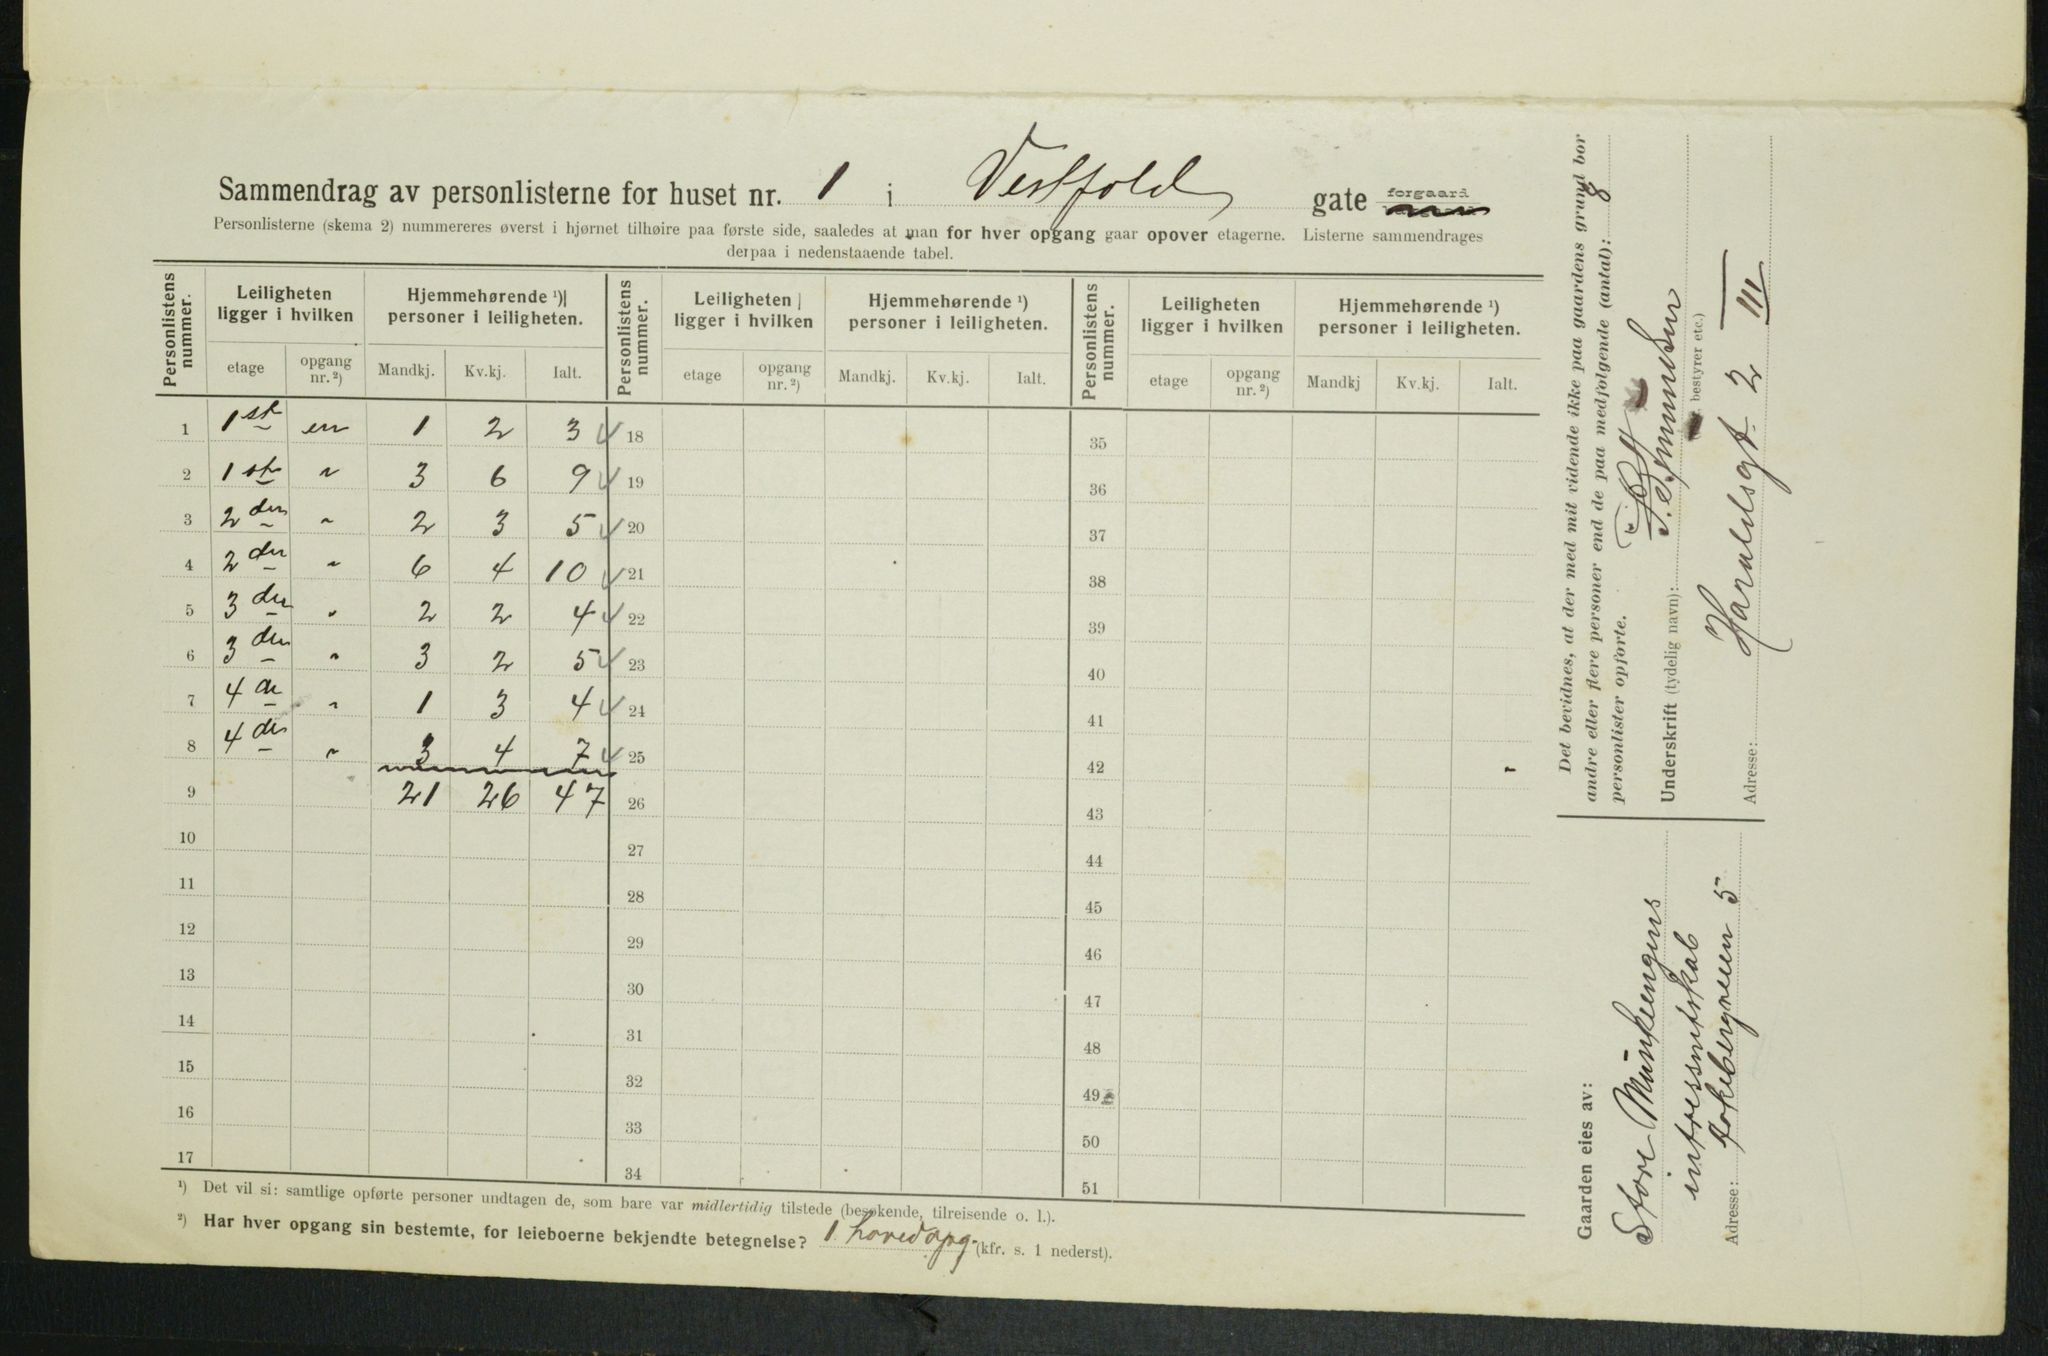 Sammendrag av personlisterne for huset nr. 1 i Vestfold gate forgaard
Personlisterne (skema 2) nummereres øverst i hjørnet tilhøire paa første side, saaledes at man for hver opgang gaar opover etagerne. Listerne sammendrages
derpaa i nedenstaaende tabel.
Personlistens nummer. Leiligheten ligger i hvilken Hjemmehørende ¹) personer i leiligheten. Personlistens nummer. Leiligheten ligger i hvilken Hjemmehørende ¹) personer i leiligheten. Personlistens nummer. Leiligheten ligger i hvilken Hjemmehørende ¹) personer i leiligheten.
etage opgang nr. ²) Mandkj. Kv.kj. Ialt. etage opgang nr. ²) Mandkj. Kv.kj. Ialt. etage opgang nr. ²) Mandkj Kv.kj. Ialt.
1 1 ste en 1 2 3 18 35
2 1 ste " 3 6 9 19 36
3 2 den " 2 3 5 20 37
4 2 den " 6 4 10 21 38
5 3 den " 2 2 4 22 39
6 3 den " 3 2 5 23 40
7 4 de " 1 3 4 24 41
8 4 de " 3 4 7 25 42
9 21 26 47 26 43
10 27 44
11 28 45
12 29 46
13 30 47
14 31 48
15 32 49
16 33 50
17 34 51
¹) Det vil si: samtlige opførte personer undtagen de, som bare var midlertidig tilstede (besøkende, tilreisende o. l.).
²) Har hver opgang sin bestemte, for leieboerne bekjendte betegnelse? 1 hovedopg. (kfr. s. 1 nederst).
Det bevidnes, at der med mit vidende ikke paa gaardens grund bor
andre eller flere personer end de paa medfølgende (antal): 8
personlister opførte.
Underskrift (tydelig navn):
bestyrer etc.)
Adresse: Haraldsgt. 2 III
Gaarden eies av:
Store Munkengens
intressentskab
Adresse: 5